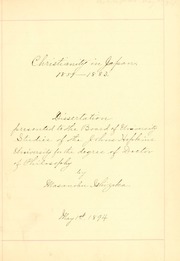 Christianity in Japan,
1859–1883.
Dissertation
presented to the Board of University
Studies of the Johns Hopkins
University for the degree of Doctor
of Philosophy
by
Masanobu Ishizaka
May 1st 1894